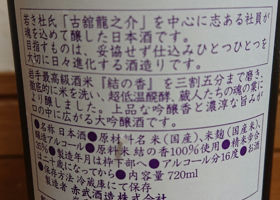 若き杜氏「古舘龍之介」を中心に志ある社員が
魂を込めて醸した日本酒です。
目指すものは、妥協せず仕込みひとつひとつを
大切に日々進化する酒造りです。
岩手最高級酒米『結の香』を三割五分まで磨き、
徹底的に米を洗い、超低温醗酵、蔵人たちの魂の
上品な吟醸香と濃潤な旨みが
口に広がる大吟醸酒です。
●名称 日本酒●原材料名 米(国産)、米麹(国産)、
醸造アルコール●原料米 結の香100%使用●精米歩合
35%●製造年月は枠下部へ●アルコール分16度●お酒
は二十歳になってから●内容量720ml
●保存方法 冷蔵庫にて保存
製造者 赤武酒造株式会社